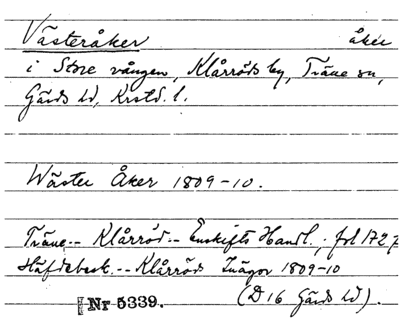 Västeråker åker
i Store vången, Klårröds by, Träne sn,
Gärds hd, Krstd. l.
Wäster Åker 1809-10.
Träne.- Klårröd.- Enskifts Handl.; fol 172 f
Häfdebesk. -- Klårröds Inägor 1809-10
Nr 5339. (D 16 Gärds hd).